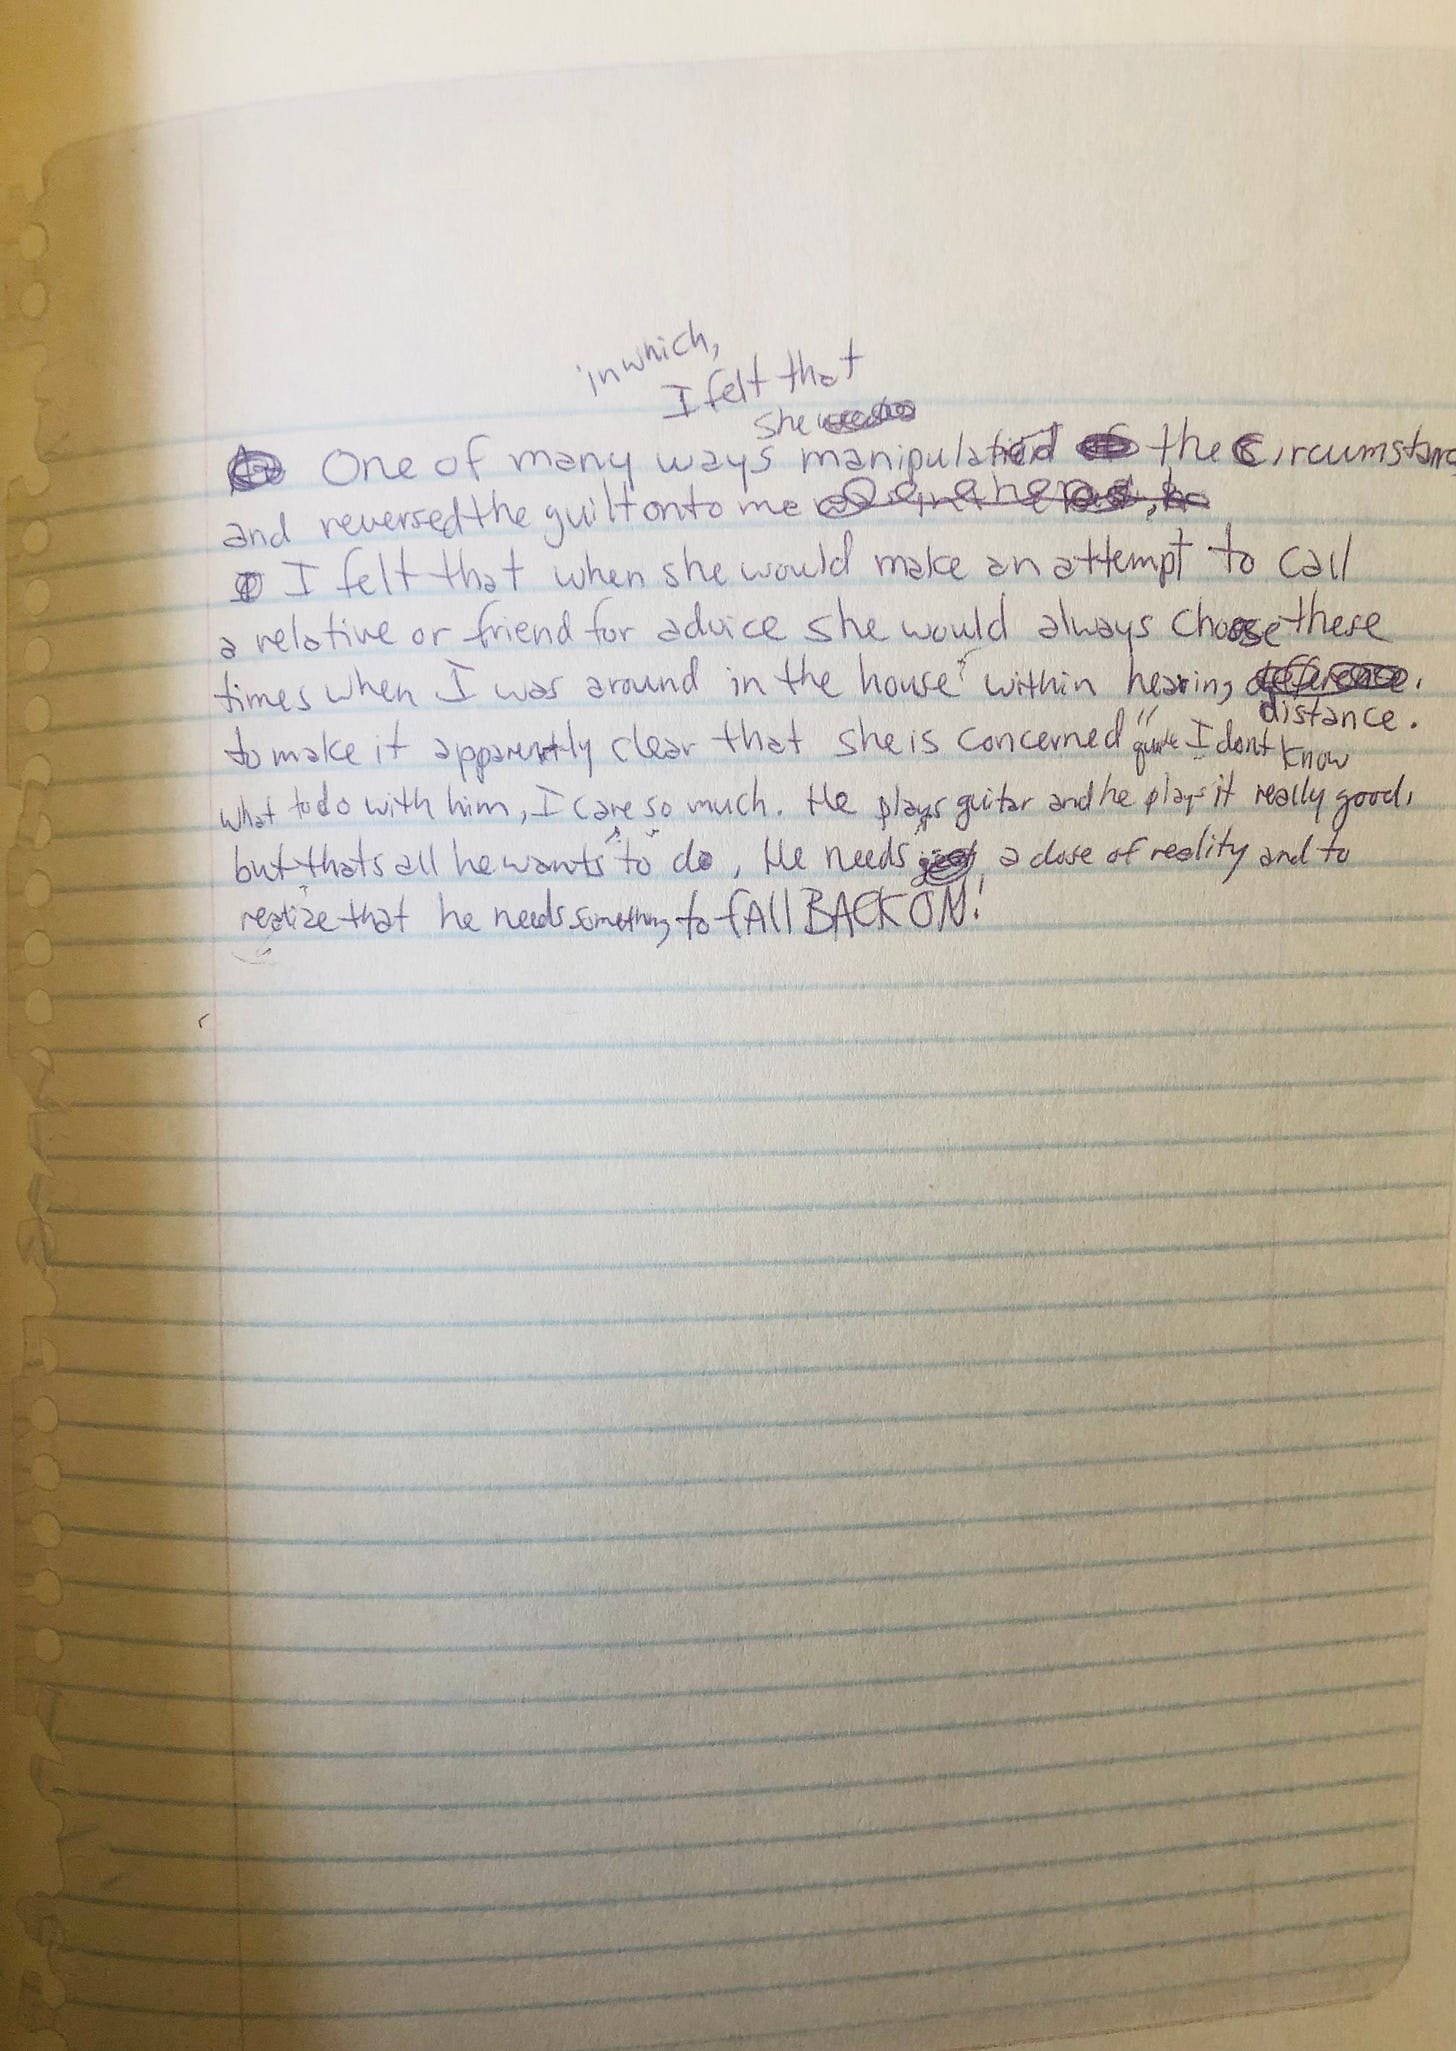 in which,
I felt that
she
One of many ways manipulated the circumstanc
and reversed the guilt onto me
I felt that when she would make an attempt to call
a relative or friend for advice she would always choose these
times when I was around in the house within hearing
distance.
to make it apparently clear that she is concerned " quote I dont know
what to do with him, I care so much. He plays guitar and he plays it really good,
but thats all he wants to do, He needs a dose of reality and to
realize that he needs something to fAll BACK ON!